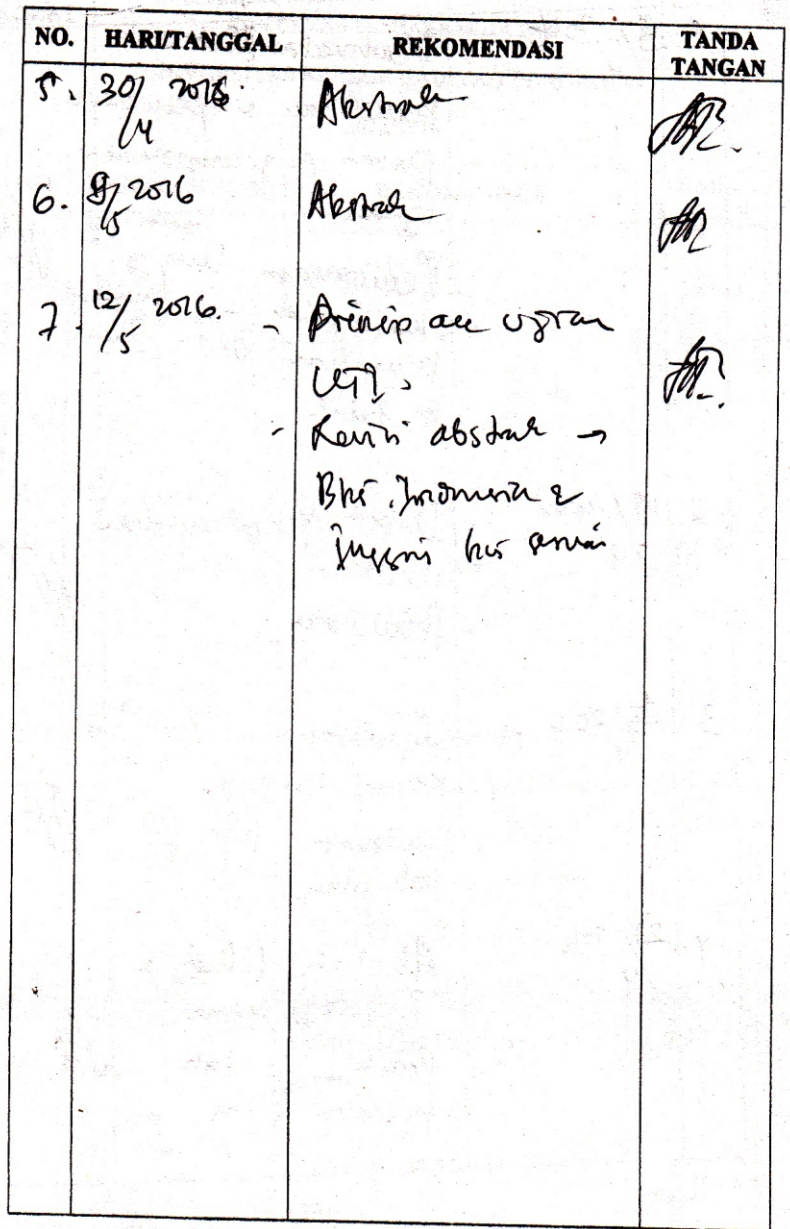 NO. HARI/TANGGAL REKOMENDASI TANDA TANGAN
5. 30/4 2016. Abstrak
6. 9/5 2016 Abstrak
7. 12/5 2016. - Prinsip acc ujian
UTP.
- Revisi abstrak →
Bhs. Indonesia &
Inggris hrs sesuai